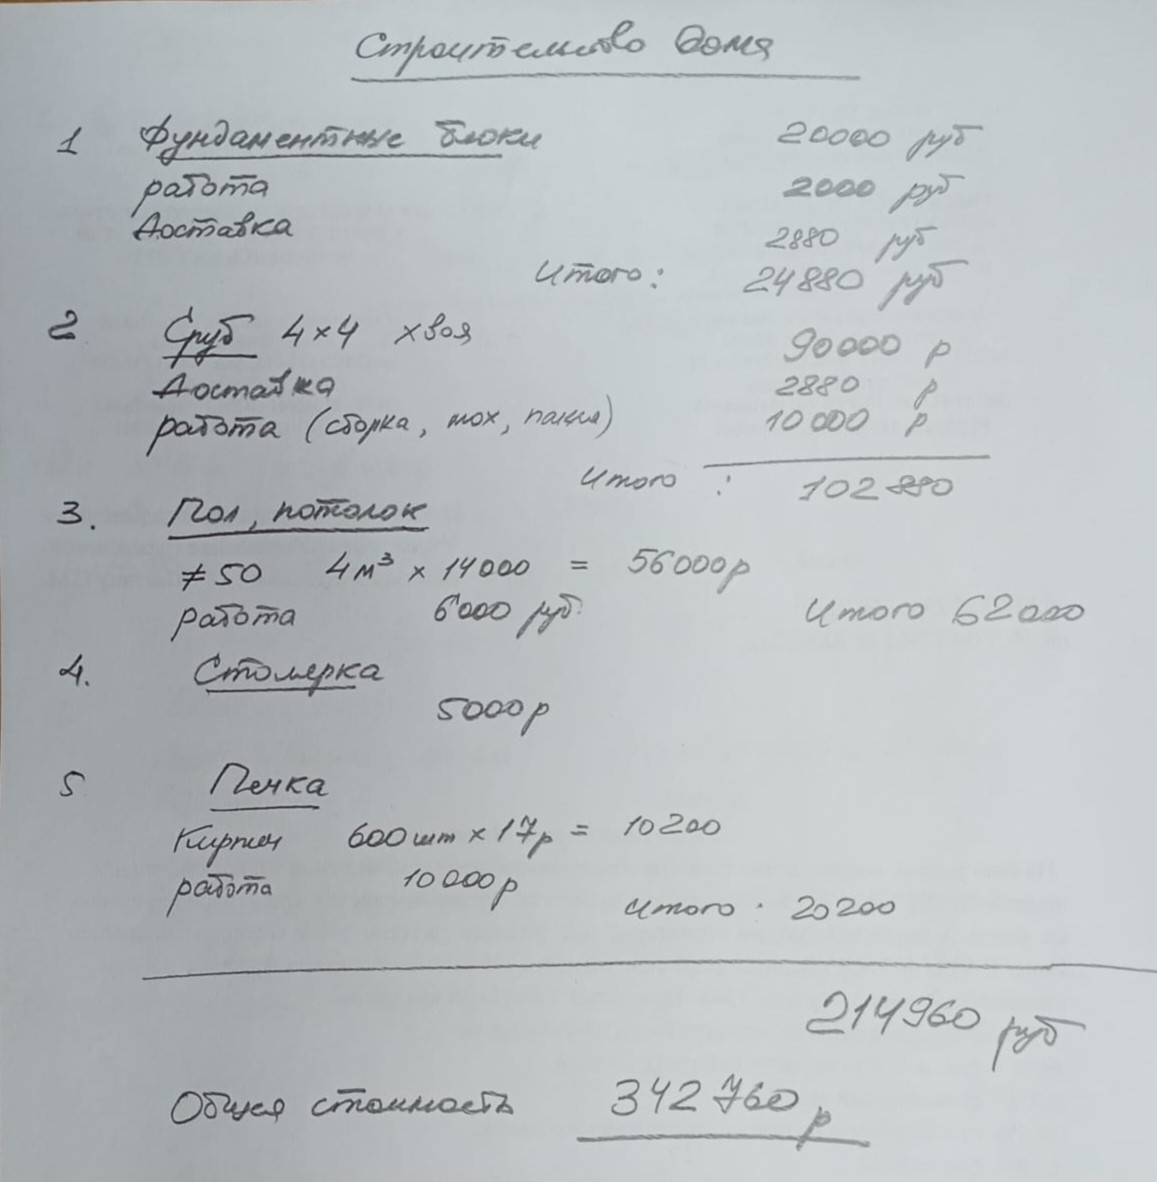 Строительство дома
1 Фундаментные блоки 20000 руб
работа 2000 руб
Доставка 2880 руб
Итого: 24880 руб
2 Сруб 4×4 хвоя 90000 р
Доставка 2880 р
работа (сборка, мох, пакля) 10000 р
Итого : 102880
3. Пол, потолок
≠50 4м³ × 14000 = 56000р
работа 6000 руб. Итого 62000
4. Столярка
5000р
5 Печка
Кирпич 600шт × 17р = 10200
работа 10000р
Итого : 20200
214960 руб
Общая стоимость 342760 р